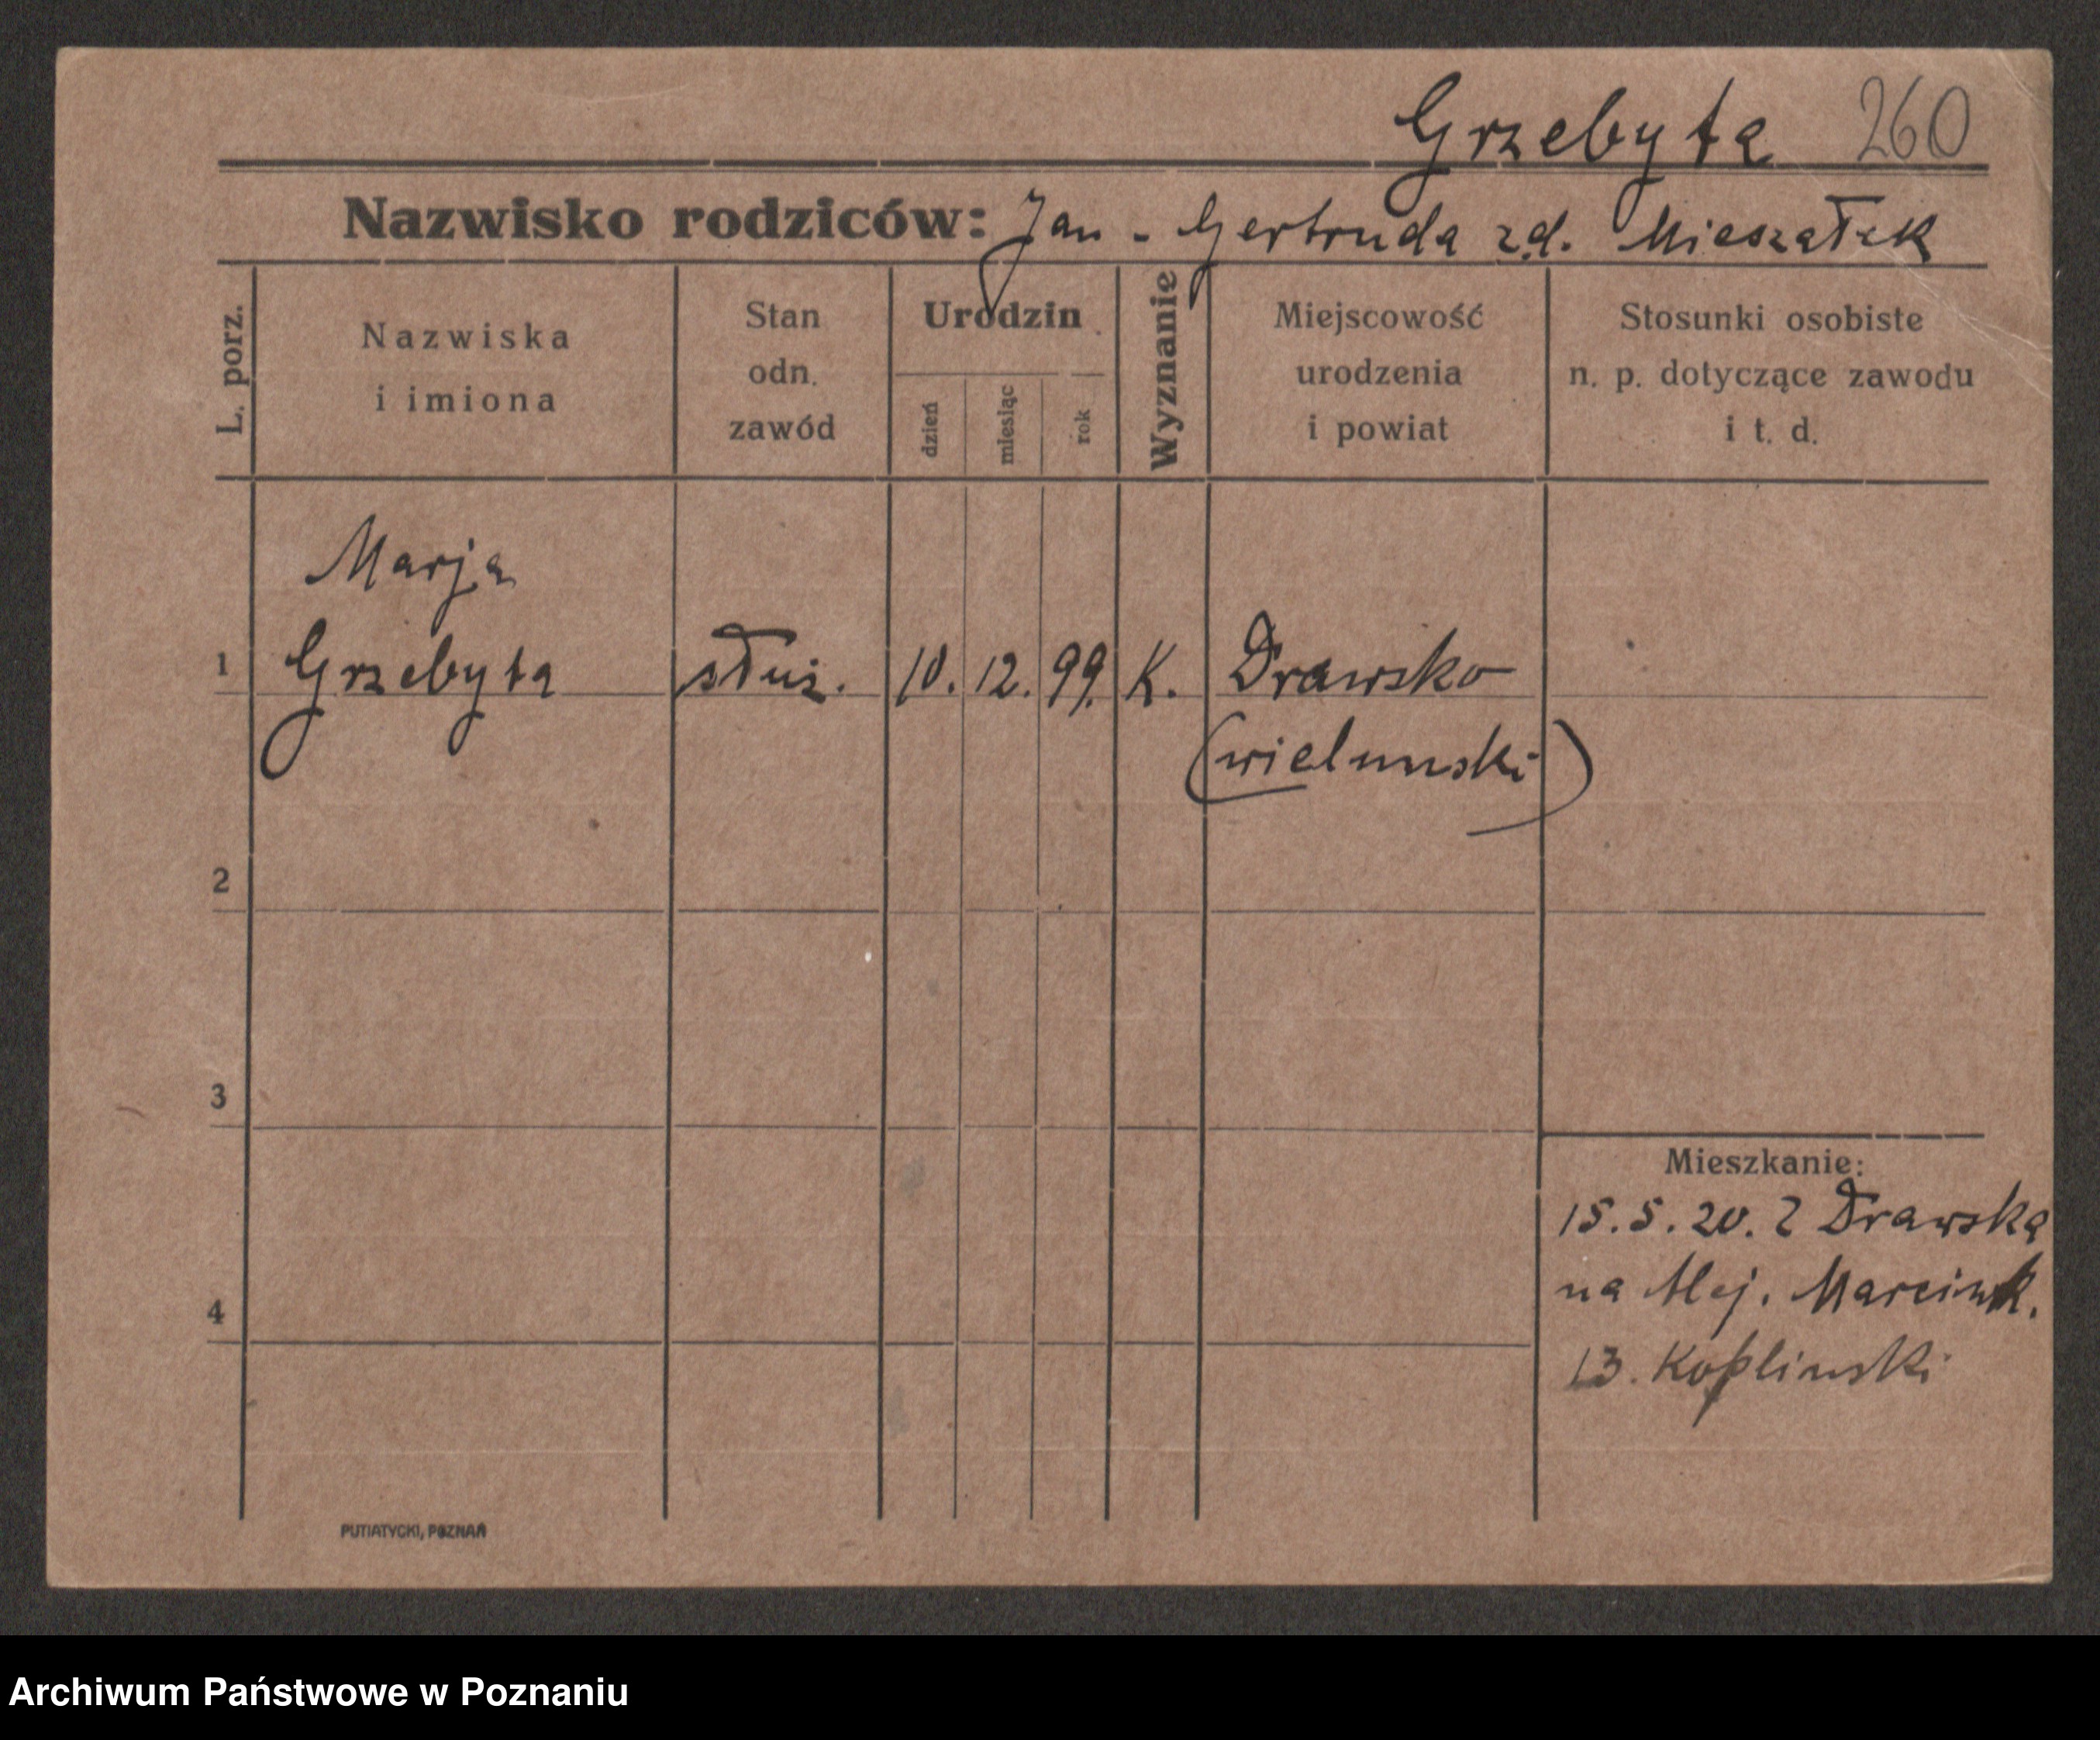 Grzebyta 260
Nazwisko rodziców: Jan - Gertruda z.d. Mieszałek
L. porz.
Nazwiska
i imiona
Stan
odn.
zawód
Urodzin
dzień
miesiąc
rok
Wyznanie
Miejscowość
urodzenia
i powiat
Stosunki osobiste
n. p. dotyczące zawodu
i t. d.
Marja
1 Grzebyta służ. 10. 12. 99. K. Drawsko
(wielunski)
2
3
Mieszkanie:
15.5.20. z Drawska
na Alej. Marcink.
4
13. Koplinski
PUTIATYCKI, POZNAŃ
Archiwum Państwowe w Poznaniu